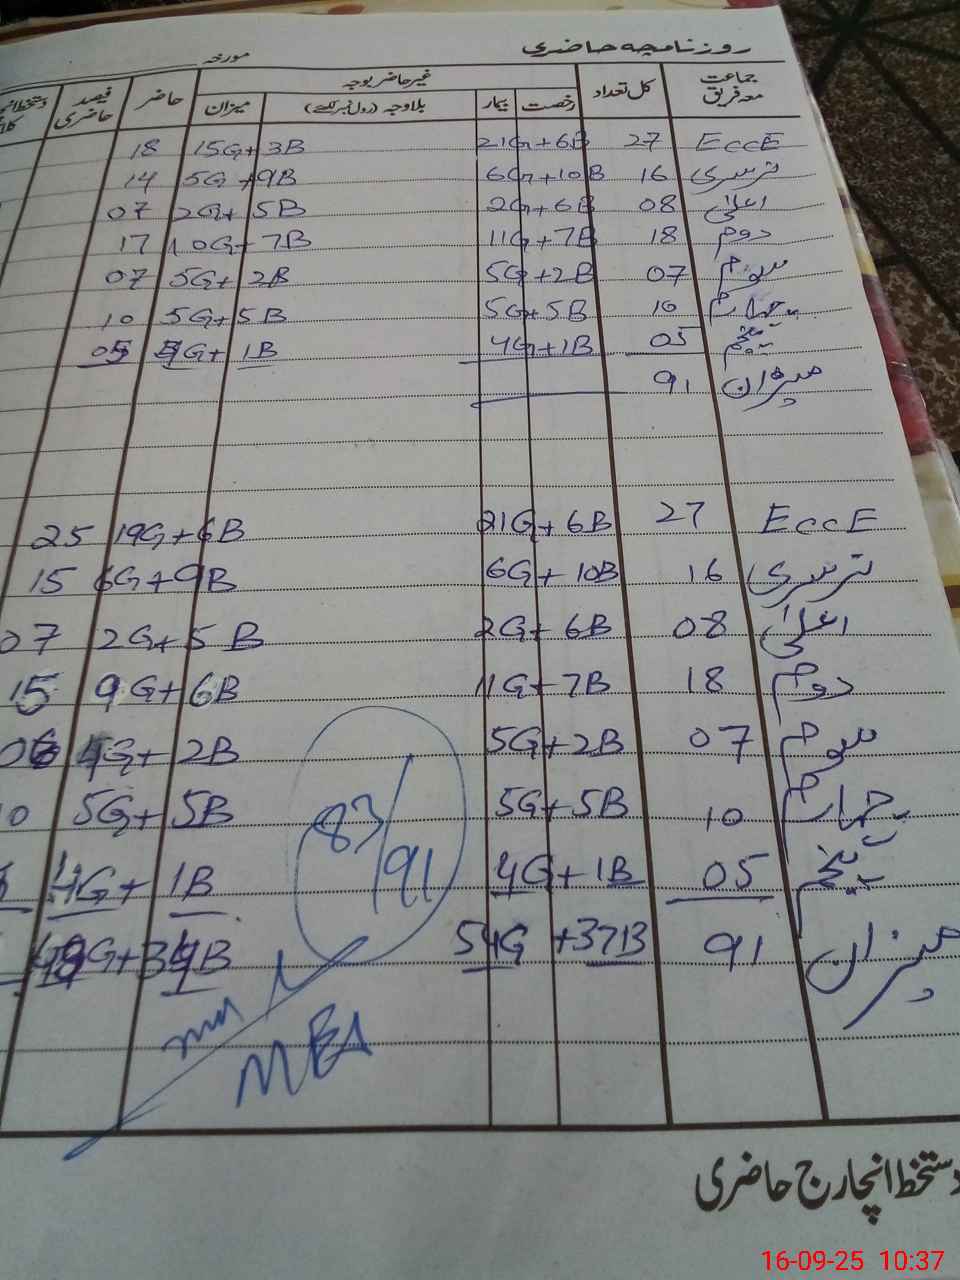 روزنامچہ حاضری
مورخہ
جماعت معہ فریق کل تعداد غیر حاضر بوجہ حاضر فیصد حاضری
رخصت بیمار بلاوجہ (رول نمبر لکھیے) میزان
EccE 27 21G+6B 15G+3B 18
نرسری 16 6G+10B 5G+9B 14
اعلیٰ 08 2G+6B 2G+5B 07
دوم 18 11G+7B 10G+7B 17
سوم 07 5G+2B 5G+2B 07
چہارم 10 5G+5B 5G+5B 10
پنجم 05 4G+1B 4G+1B 05
میزان 91
EccE 27 21G+6B 19G+6B 25
نرسری 16 6G+10B 6G+9B 15
اعلیٰ 08 2G+6B 2G+5B 07
دوم 18 11G+7B 9G+6B 15
سوم 07 5G+2B 4G+2B 06
چہارم 10 5G+5B 5G+5B 10
پنجم 05 4G+1B 4G+1B
میزان 91 54G+37B 49G+34B
83/91
MEA
دستخط انچارج حاضری
16-09-25 10:37